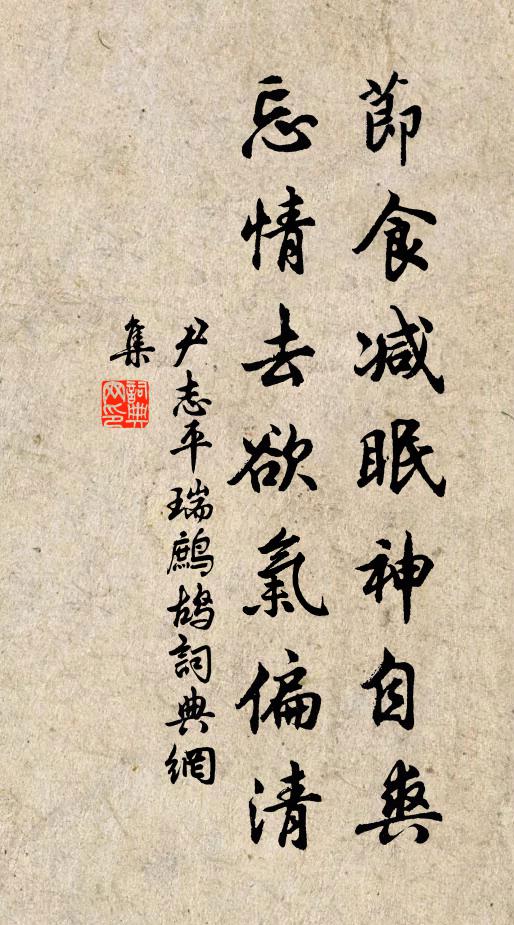 節食減眠神自爽
忘情去欲氣偏清
尹志平瑞鷓鴣詞典網
集
詞典網印